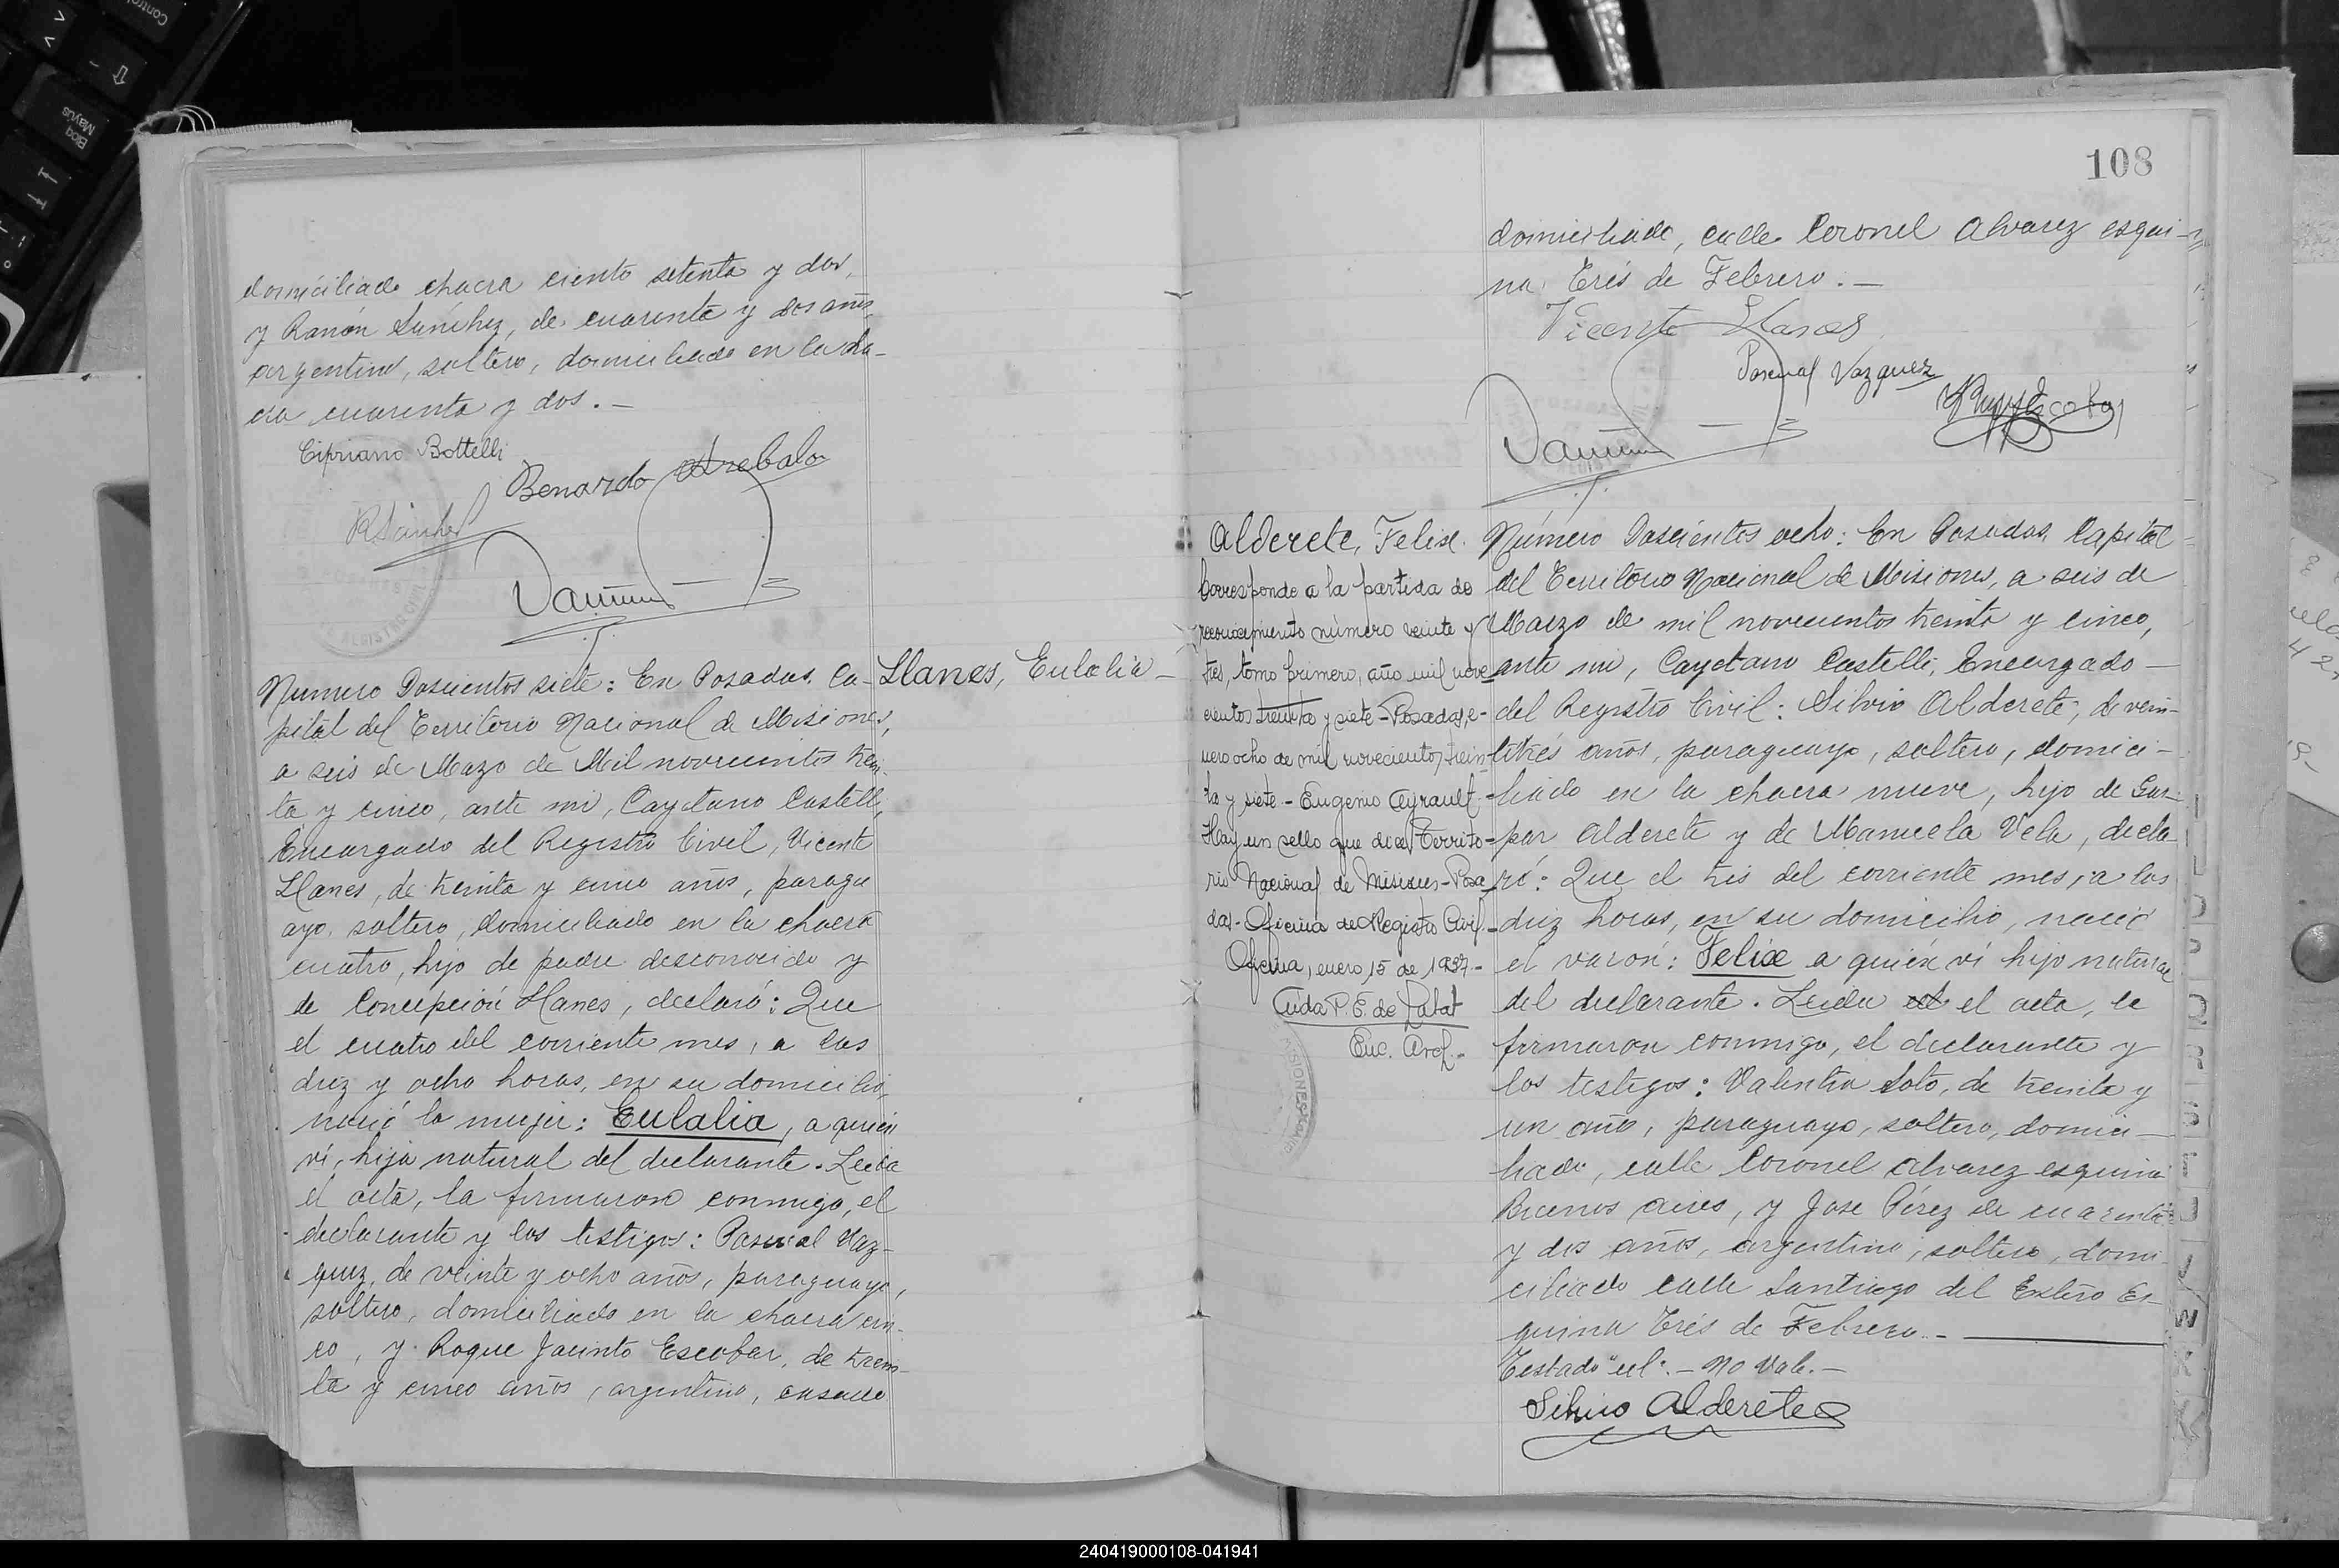 domiciliado chacra ciento setenta y dos,
y Ramón Sánchez, de cuarenta y dos años,
argentino, soltero, domiciliado en la cha-
cra cuarenta y dos.—
Cipriano Bottelli
Benardo Arebalo
RSánchez
Numero Doscientos siete: En Posadas, Ca-
Llanes, Eulalia
pital del Territorio Nacional de Misiones,
a seis de Mazo de Mil novecientos trein-
ta y cinco, ante mi, Cayetano Castelli,
Encargado del Registro Civil, Vicente
Llanes, de treinta y cinco años, paragu
ayo, soltero, domiciliado en la chacra
cuatro, hijo de padre desconocido y
de Concepción Llanes, declaró: Que
el cuatro del corriente mes, a las
diez y ocho horas, en su domicilio,
nació la mujer: Eulalia, a quién
ví, hija natural del declarante. Leida
el acta, la firmaron conmigo, el
declarante y los testigos: Pascual Vaz-
quez, de veinte y ocho años, paraguayo,
soltero, domiciliado en la chacra cin-
co, y Roque Jacinto Escobar, de trein-
ta y cinco años, argentino, casado
108
domiciliado, calle Coronel Alvarez esqui-
na Trés de Febrero.—
Vicente Llanes
Pascual Vazquez
Alderete, Felix.
Corresponde a la partida de
reconocimiento número veinte y
trés, tomo primero, año mil nove
cientos treinta y siete - Posadas, e-
nero ocho de mil novecientos trein-
ta y siete - Eugenio Ayrault -
Hay un sello que dice: Territo-
rio Nacional de Misiones - Posa
das - Oficina de Registro Civil -
Oficina, enero 15 de 1937 -
Enc. Arch.-
Número Doscientos ocho: En Posadas, Capital
del Territorio Nacional de Misiones, a seis de
Marzo de mil novecientos treinta y cinco,
ante mi, Cayetano Castelli, Encargado
del Registro Civil: Silvio Alderete, de vein-
titrés años, paraguayo, soltero, domici-
liado en la chacra nueve, hijo de Gas-
par Alderete y de Manuela Vela, decla
ró: Que el trés del corriente mes, a las
diez horas, en su domicilio, nació
el varón: Felix a quién ví hijo natural
del declarante. Leida el el acta, la
firmaron conmigo, el declarante y
los testigos: Valentin Soto, de treinta y
un año, paraguayo, soltero, domici-
liado, calle Coronel Alvarez esquina
Buenos aires, y Jose Pérez de cuarenta
y dos años, argentino, soltero, domi
ciliado calle Santiago del Estero Es-
quina Trés de Febrero.-
Testado "el". - No Vale.-
Silvio Alderete
240419000108-041941